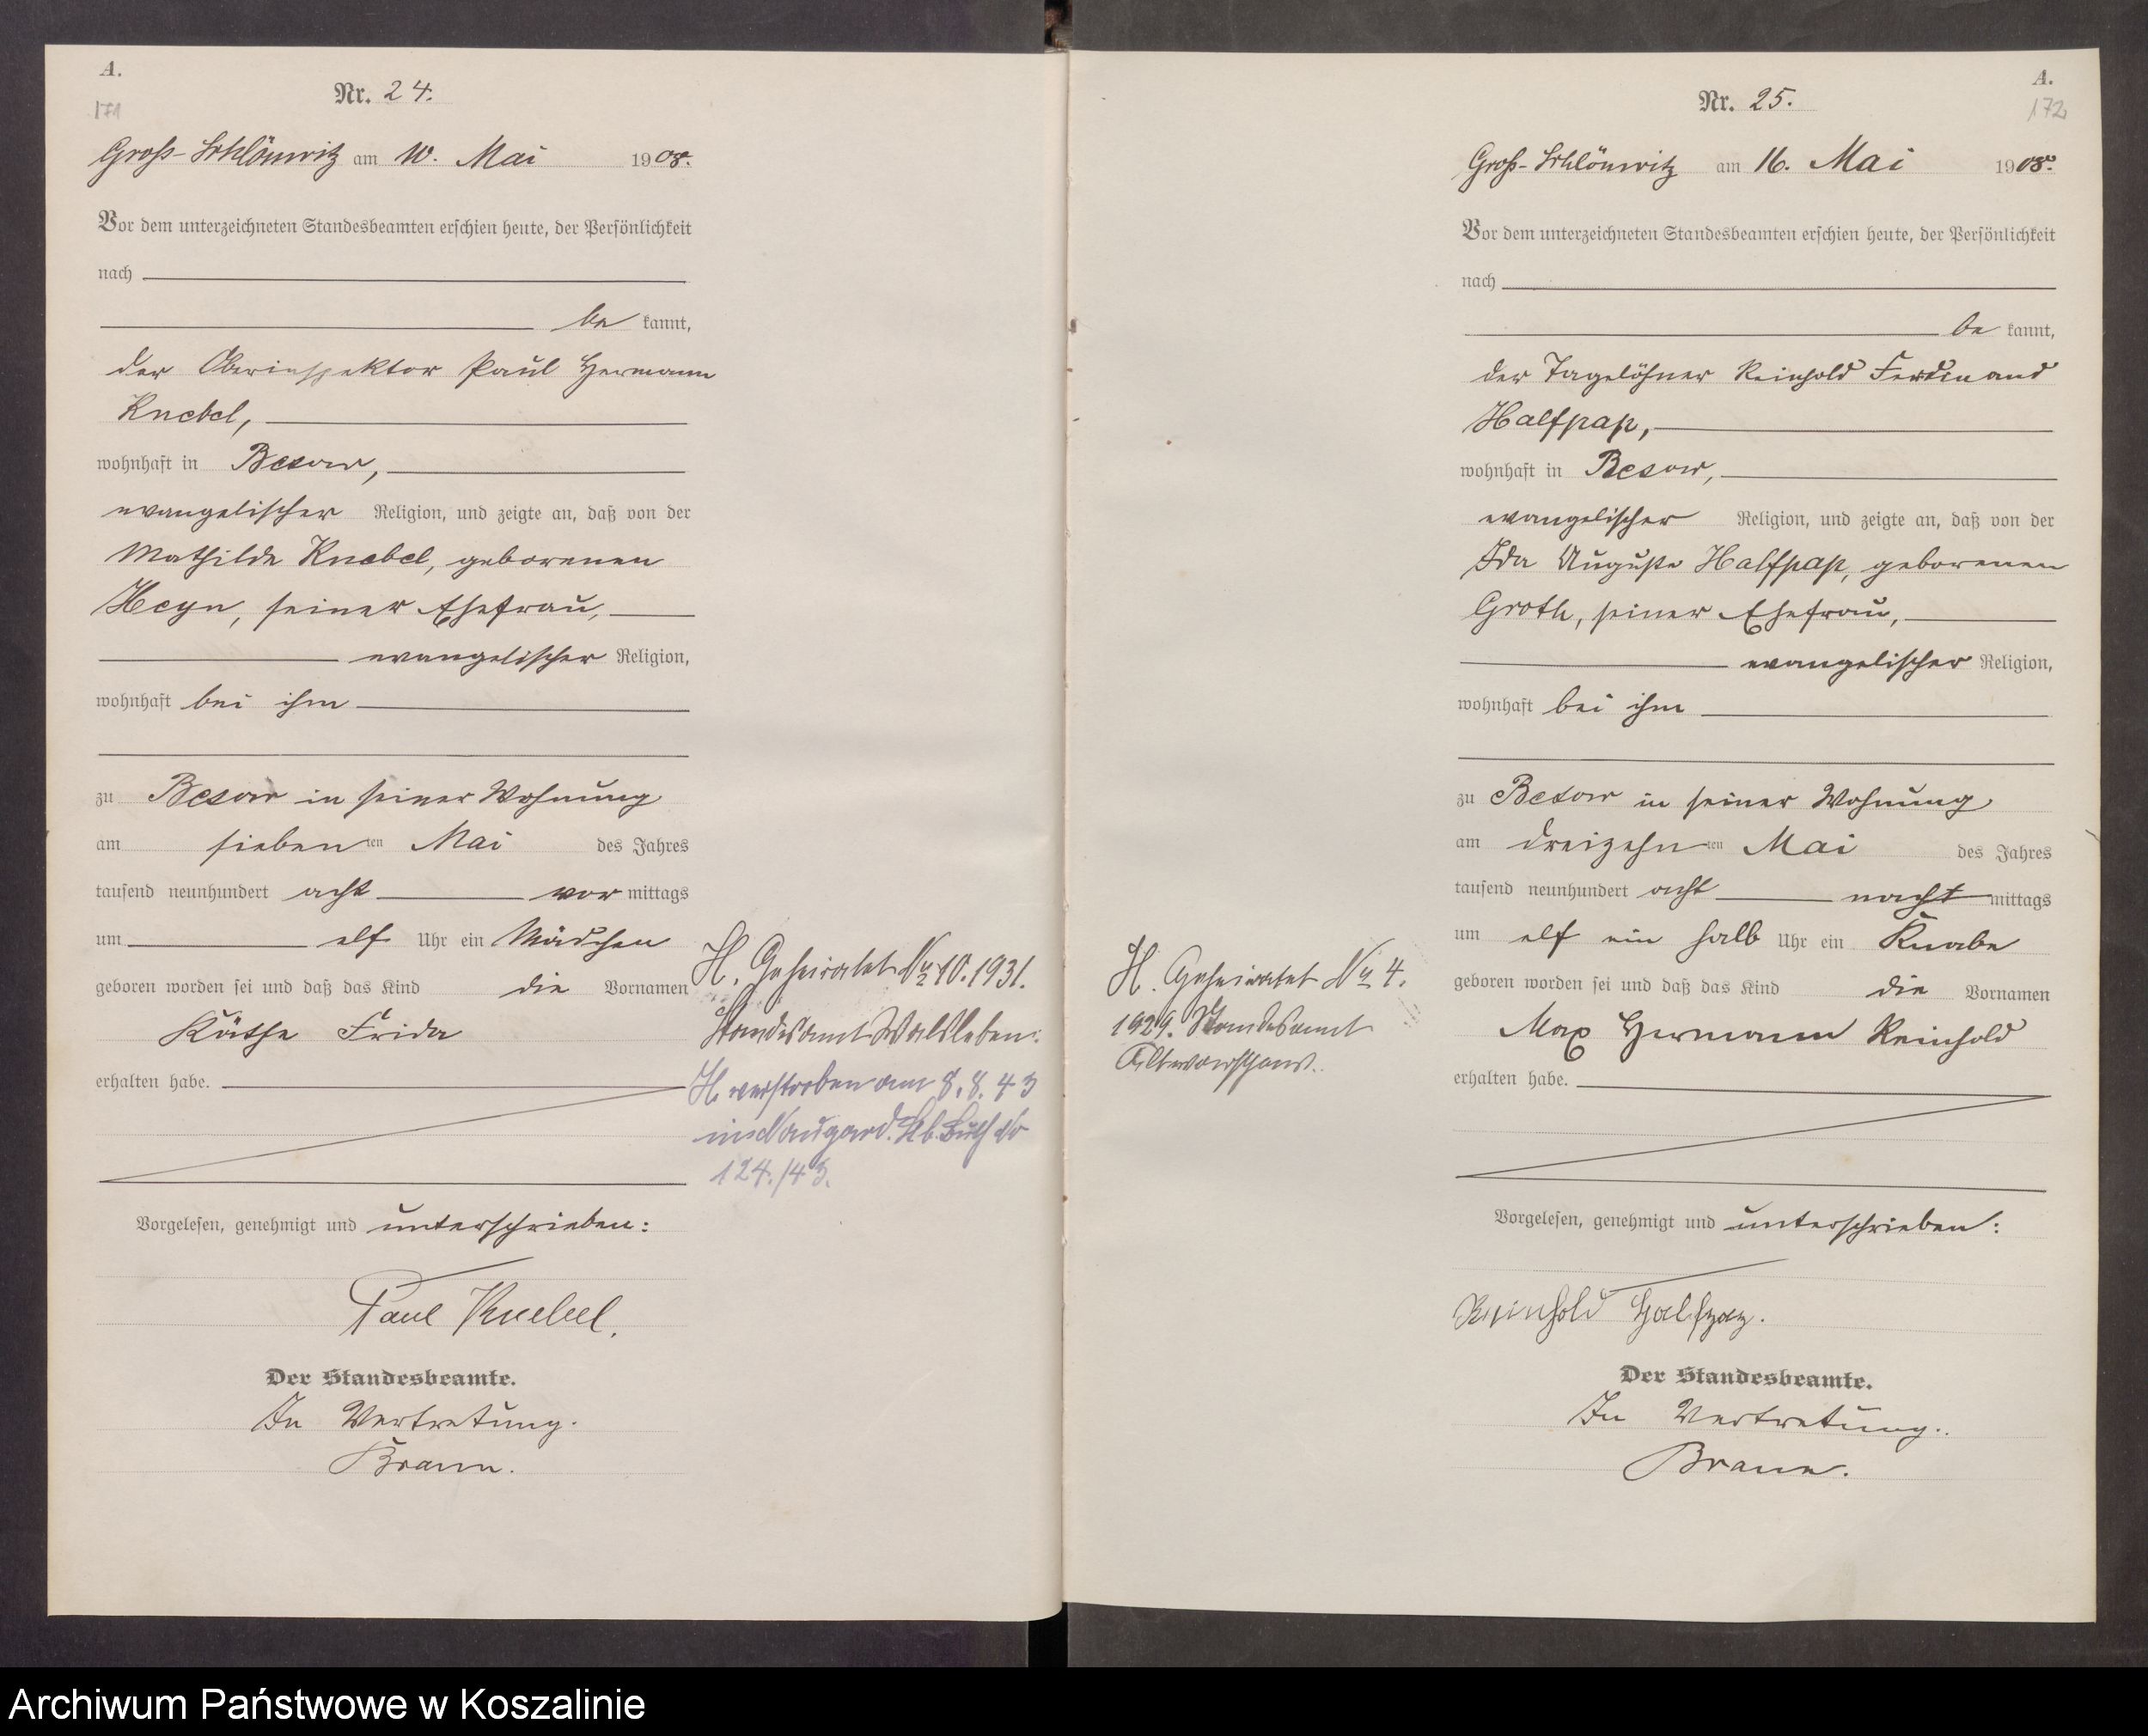 A.
171
Nr. 24.
Groß-Schlönwitz am 10. Mai 1908.
Vor dem unterzeichneten Standesbeamten erschien heute, der Persönlichkeit
nach
be kannt,
der Oberinspektor Paul Hermann
Knebel,
wohnhaft in Besow,
evangelischer Religion, und zeigte an, daß von der
Mathilde Knebel, geborenen
Heyn, seiner Ehefrau,
evangelischer Religion,
wohnhaft bei ihm
zu Besow in seiner Wohnung
am sieben ten Mai des Jahres
tausend neunhundert acht vor mittags
um elf Uhr ein Mädchen
geboren worden sei und daß das Kind die Vornamen
Käthe Frida
erhalten habe.
H. Geheiratet Nr 10. 1931.
Standesamt Walsleben.
H. verstorben am 8.8.43
in Naugard. Stb. Buch Nr
124./43.
Vorgelesen, genehmigt und unterschrieben:
Paul Knebel.
Der Standesbeamte.
In Vertretung.
Braun.
A.
172
Nr. 25.
Groß-Schlönwitz am 16. Mai 1908.
Vor dem unterzeichneten Standesbeamten erschien heute, der Persönlichkeit
nach
be kannt,
der Tagelöhner Reinhold Ferdinand
Halfpap,
wohnhaft in Besow,
evangelischer Religion, und zeigte an, daß von der
Ida Auguste Halfpap, geborenen
Groth, seiner Ehefrau,
evangelischer Religion,
wohnhaft bei ihm
zu Besow in seiner Wohnung
am dreizehn ten Mai des Jahres
tausend neunhundert acht nacht mittags
um elf ein halb Uhr ein Knabe
geboren worden sei und daß das Kind die Vornamen
Max Hermann Reinhold
erhalten habe.
H. Geheiratet Nr 4.
1929. Standesamt
Vorgelesen, genehmigt und unterschrieben:
Reinhold Halfpap.
Der Standesbeamte.
In Vertretung.
Braun.
Archiwum Państwowe w Koszalinie